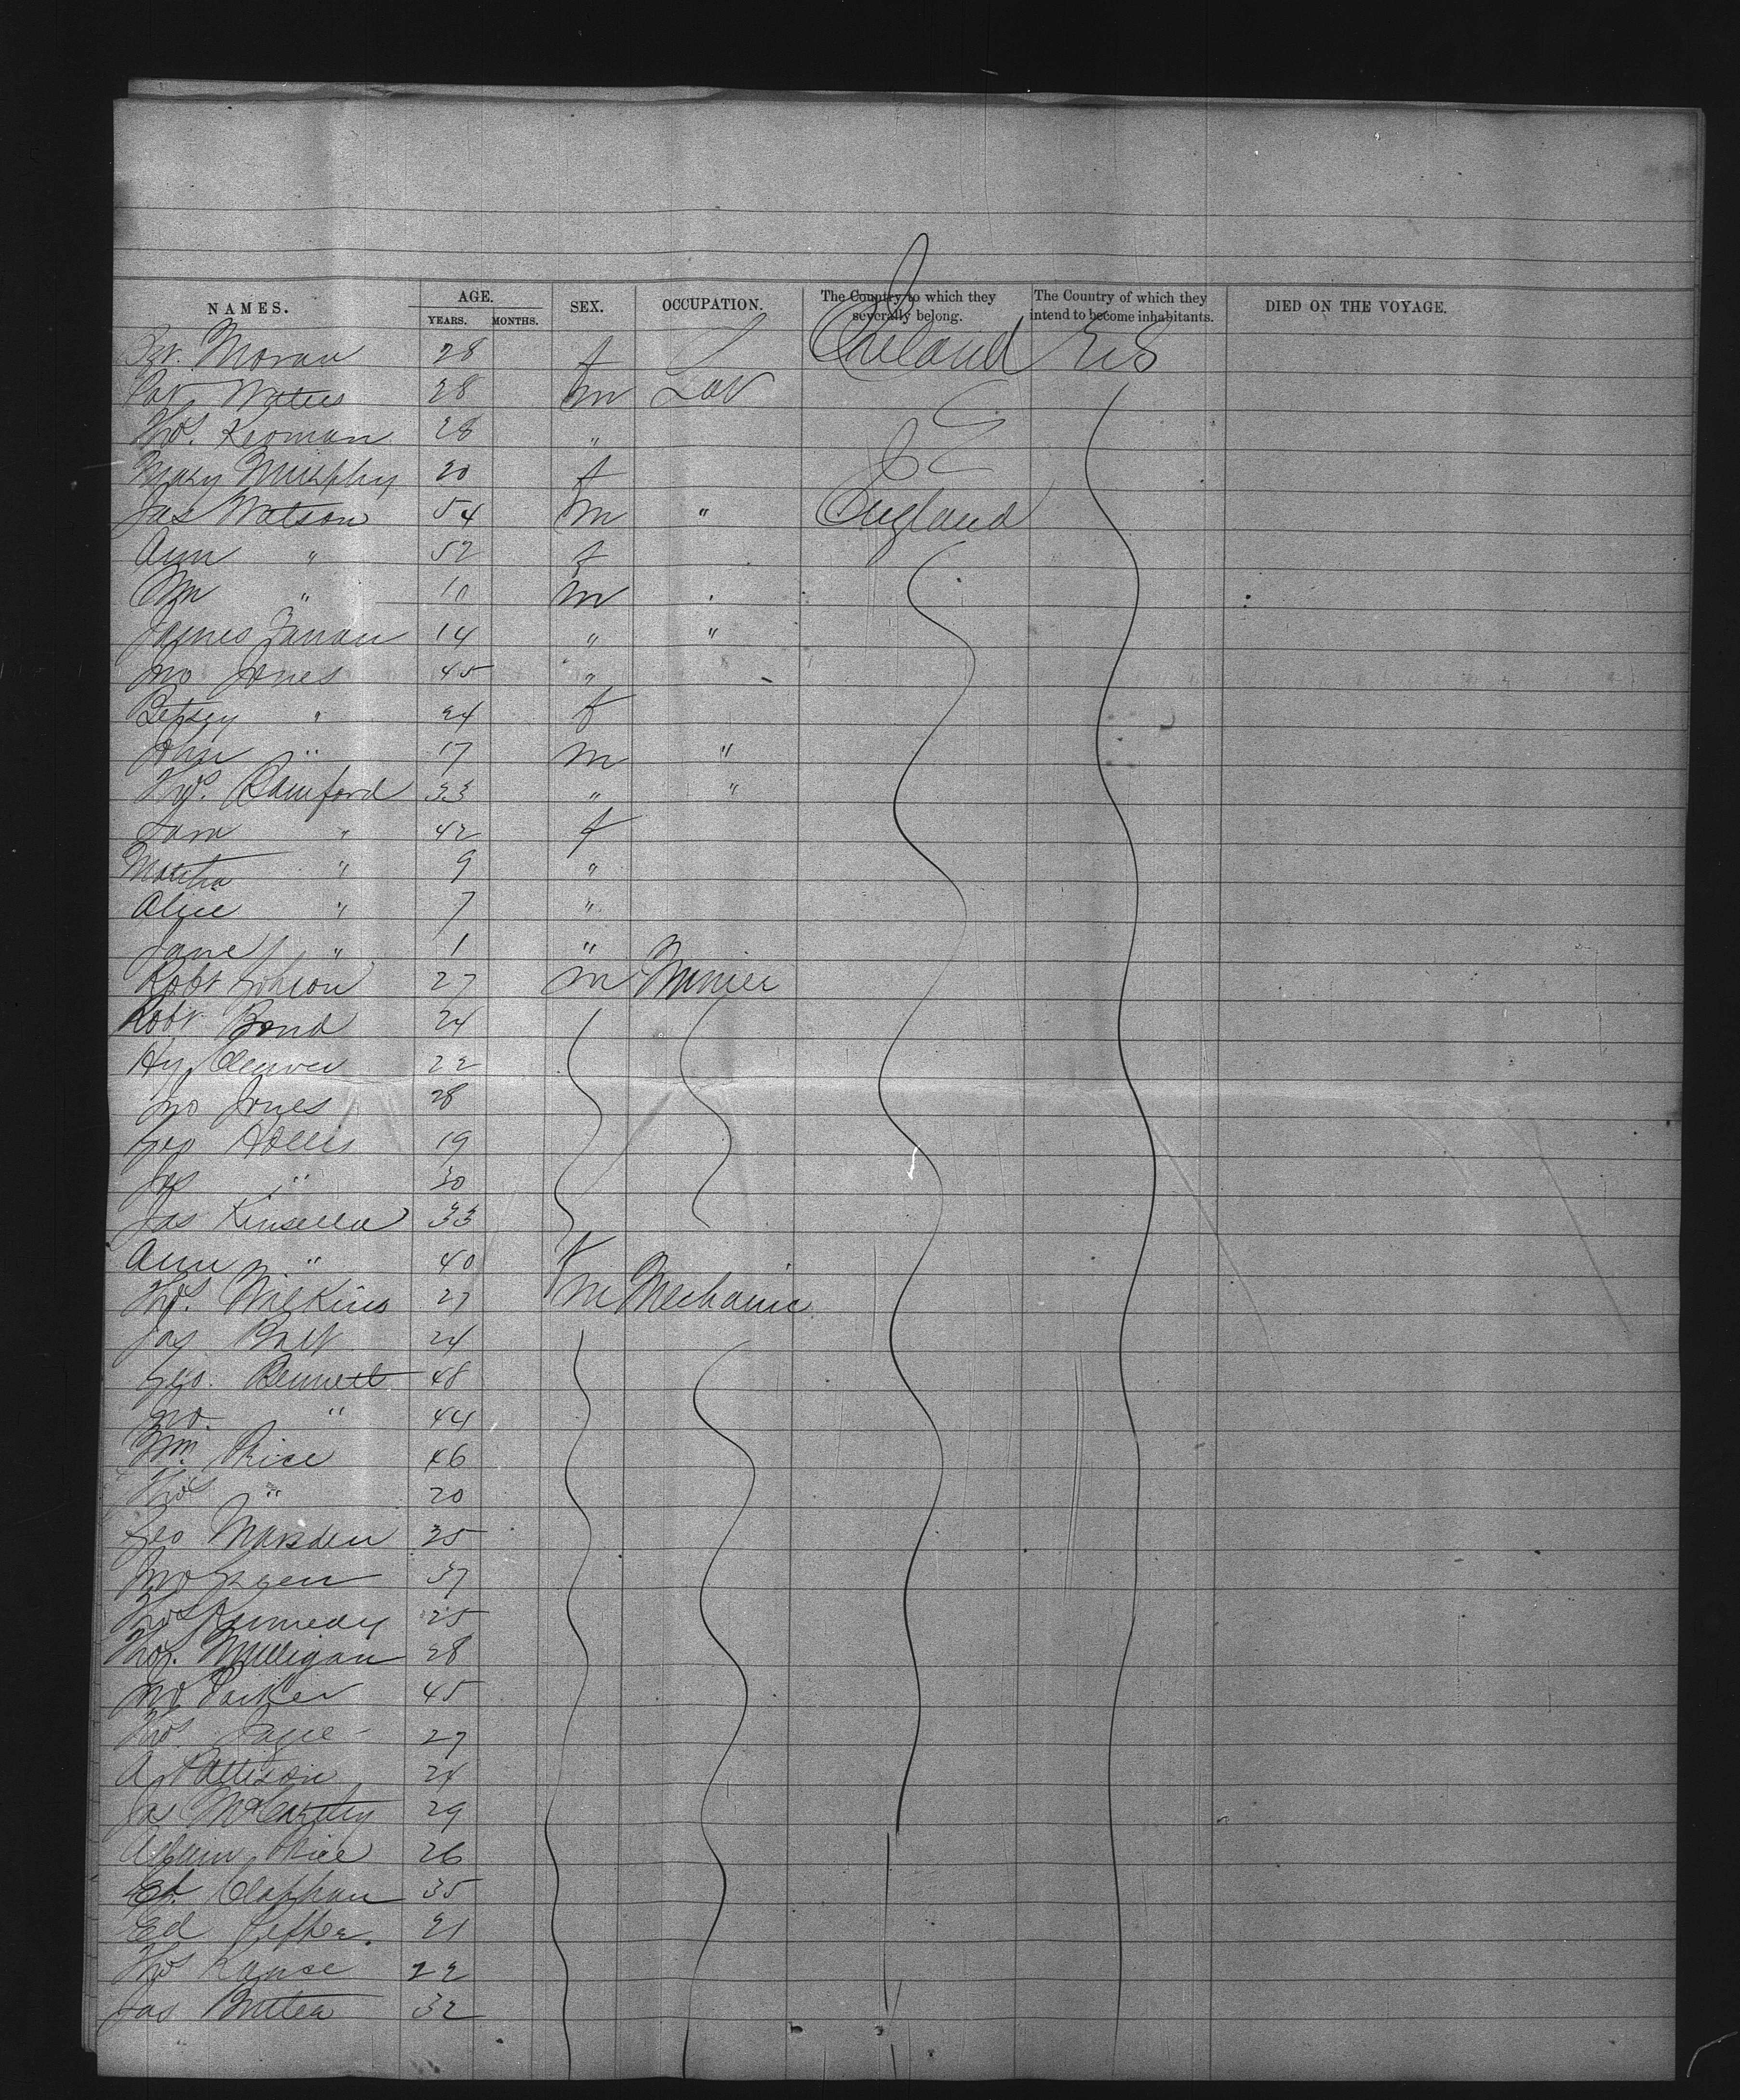 NAMES. AGE. YEARS. MONTHS. SEX. OCCUPATION. The Country to which they severally belong. The Country of which they intend to become inhabitants. DIED ON THE VOYAGE.
Moran 28 f Ireland U S
Pat Waters 28 m Lab
Thos. Keoman 28 "
Mary Murphy 20 f
Jas Watson 54 m " England
Ann " 52 f
Wm " 10 m
James 14 " "
Jno Jones 45 "
Betsey " 24 f
John " 17 m "
Thos. Bamford 33 " "
" 42 f
Martha " 9 "
Alice " 7 "
Jane " 1 "
Robt 27 m Minier
Robt Bond 24
Hy Cleaver 22
Jno Jones 28
Geo Hollis 19
" 30
Jas Kinsella 33
Ann " 40 f
Thos. Wilkins 27 m Mechanic
Jas 24
Geo. Bennett 48
Jno. " 44
Wm. Price 46
Thos " 20
Geo Marsden 35
Jno Green 37
Thos Kennedy 25
Thos. Milligan 28
Jno Parker 45
Thos. 27
A Pattison 24
Jas McCarthy 29
Price 26
Clapham 35
Ed 21
Thos 22
Jas Butler 32